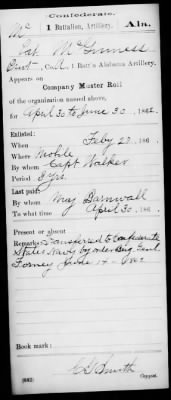 Confederate.
Mc 1 Battalion, Artillery. Ala.
Pat McGinness
Pvt, Co. A, 1 Batt'n Alabama Artillery.
Appears on
Company Muster Roll
of the organization named above,
for April 30 to June 30, 1862.
Enlisted:
When Feby 23, 186
Where Mobile
By whom Capt Walker
Period 3 Yrs
Last paid:
By whom Maj Barnwall
To what time April 30, 186
Present or absent
Remarks: Transferred to Confederate
States Navy by order Brig. Genl
Forney June 14
Book mark:
C S Smith
(682) Copyist.